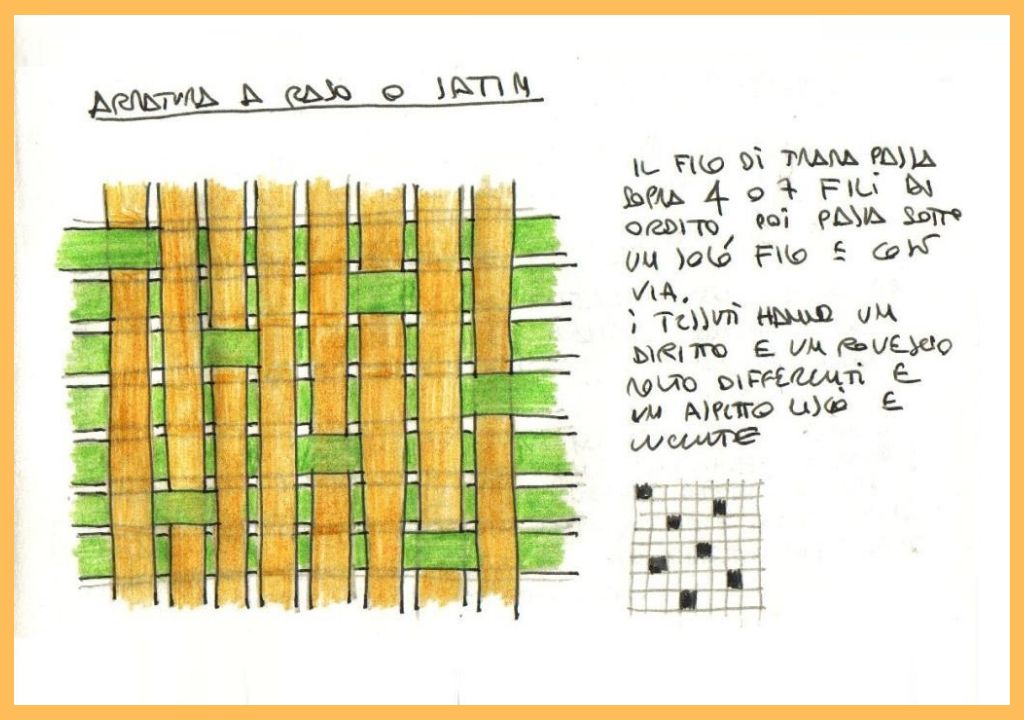 ARMATURA A RASO O SATIN
IL FILO DI TRAMA PASSA
SOPRA 4 O 7 FILI DI
ORDITO, POI PASSA SOTTO
UN SOLO FILO E COSÌ
VIA.
I TESSUTI HANNO UN
DIRITTO E UN ROVESCIO
MOLTO DIFFERENTI E
UN ASPETTO LISCIO E
LUCENTE